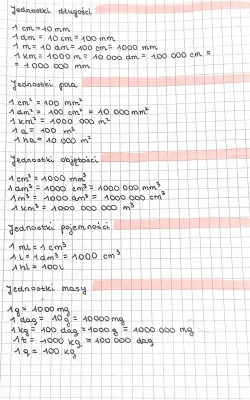 Jednostki długości
1 cm = 10 mm
1 dm = 10 cm = 100 mm
1 m = 10 dm = 100 cm = 1000 mm
1 km = 1000 m = 10 000 dm = 100 000 cm =
= 1 000 000 mm
Jednostki pola
1 cm² = 100 mm²
1 dm² = 100 cm² = 10 000 mm²
1 km² = 1000 000 m²
1 a = 100 m²
1 ha = 10 000 m²
Jednostki objętości
1 cm³ = 1000 mm³
1 dm³ = 1000 cm³ = 1000 000 mm³
1 m³ = 1000 dm³ = 1000 000 cm³
1 km³ = 1000 000 000 m³
Jednostki pojemności
1 ml = 1 cm³
1 l = 1 dm³ = 1000 cm³
1 hl = 100 l
Jednostki masy
1 g = 1000 mg
1 dag = 10 g = 10000 mg
1 kg = 100 dag = 1000 g = 1000 000 mg
1 t = 1000 kg = 100 000 dag
1 q = 100 kg